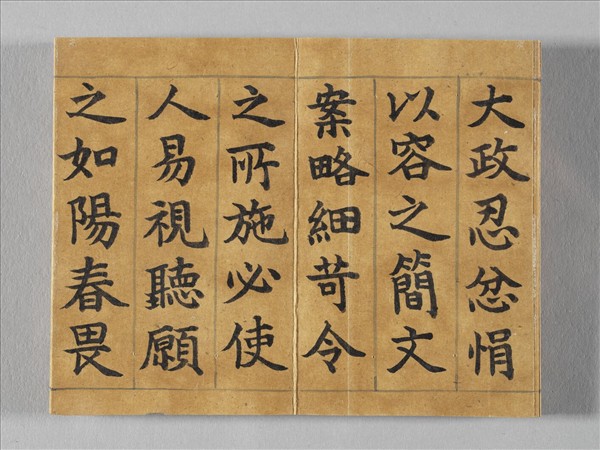 大政忍忿悁
以容之簡文
案略細苛令
之所施必使
人易視聽願
之如陽春畏